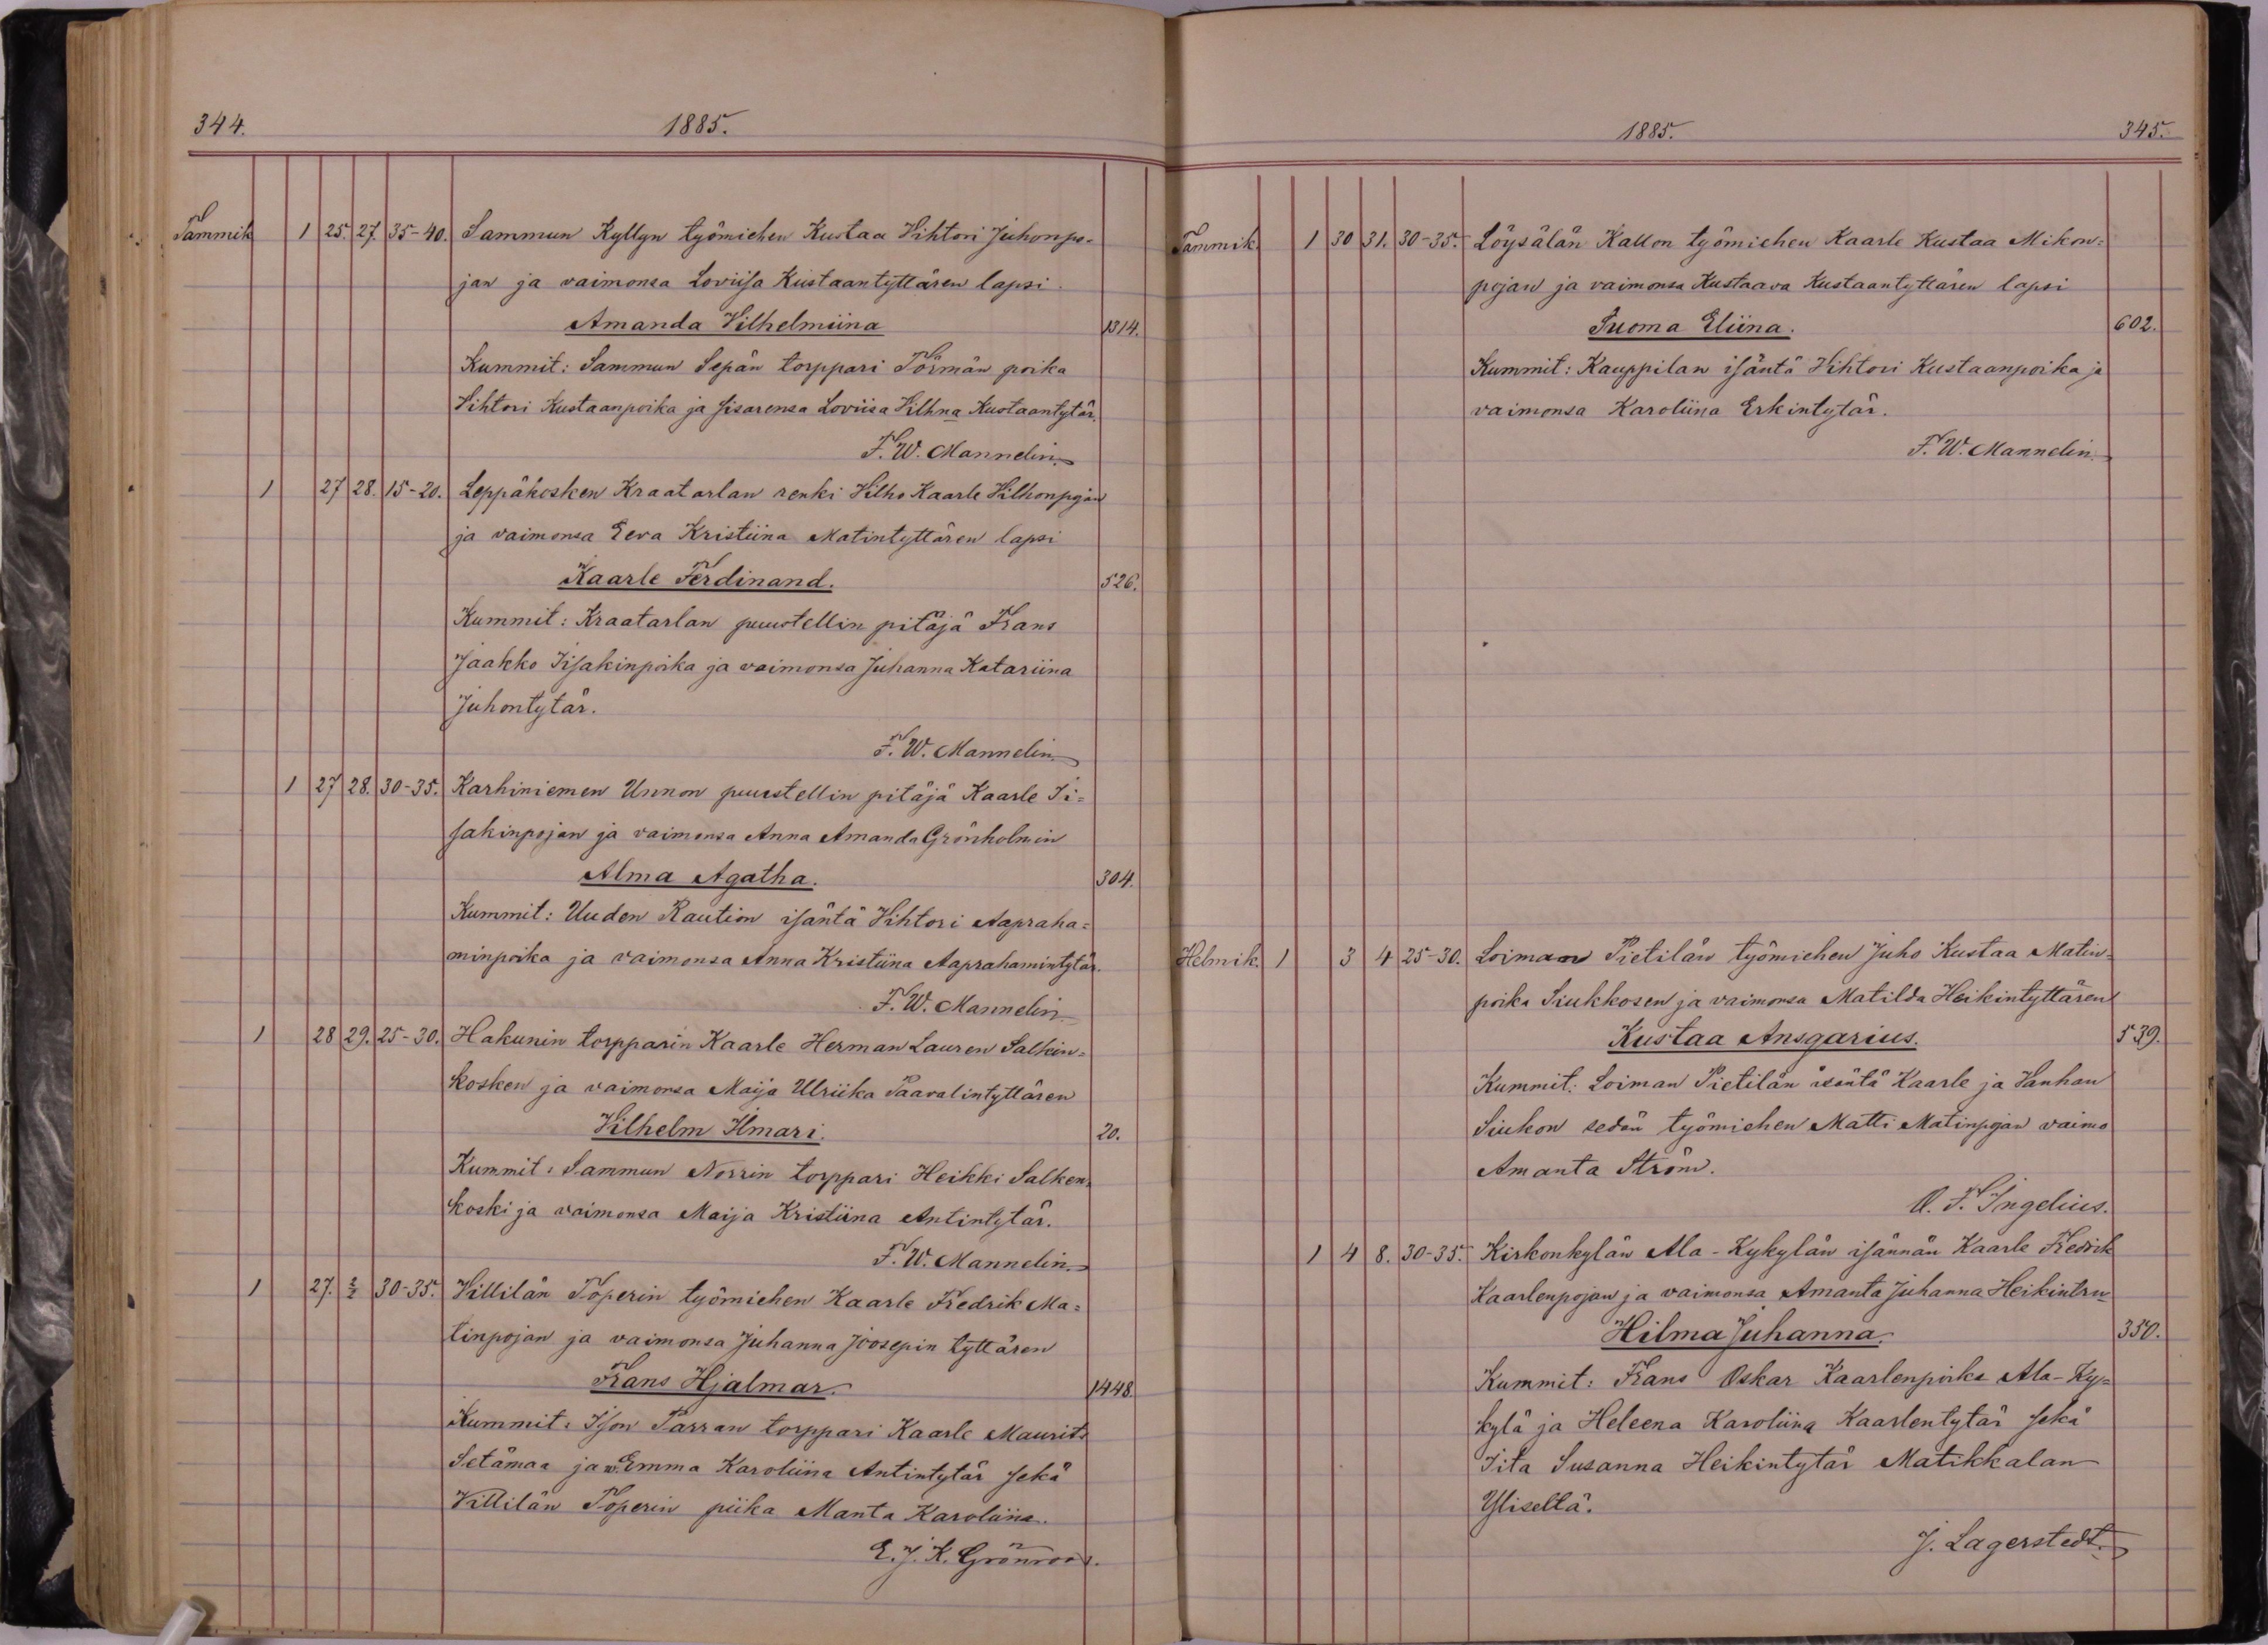 344.
1885.
Tammik 1 25. 27. 35-40. Sammun Kyllyn työmiehen Kustaa Vihtori Juhonpo-
jan ja vaimonsa Loviisa Kustaantyttären lapsi
Amanda Vilhelmiina 1314.
Kummit: Sammun Sepän torppari Törmän poika
Vihtori Kustaanpoika ja sisarensa Loviisa Vilhna Kustaantytär.
F. W. Mannelin.
1 27 28. 15-20. Leppäkosken Kraatarlan renki Vilho Kaarle Vilhonpojan
ja vaimonsa Eeva Kristiina Matintyttären lapsi
Kaarle Ferdinand. 526.
Kummit: Kraatarlan puustellin pitäjä Frans
Jaakko Iisakinpoika ja vaimonsa Juhanna Katariina
Juhontytär.
F. W. Mannelin
1 27 28. 30-35. Karhiniemen Unnon puustellin pitäjä Kaarle Ii=
sakinpojan ja vaimonsa Anna Amanda Grönholmin
Alma Agatha. 304.
Kummit: Uuden Raution isäntä Vihtori Aapraha=
minpoika ja vaimonsa Anna Kristiina Aaprahamintytär.
F. W. Mannelin
1 28 29. 25-30. Hakunin torpparin Kaarle Herman Lauren Salkin=
kosken ja vaimonsa Maija Ulriika Paavalintyttären
Vilhelm Ilmari. 20.
Kummit: Sammun Norrin torppari Heikki Salken=
koski ja vaimonsa Maija Kristiina Antintytär.
F. W. Mannelin.
1 27. 2/2 30-35. Villilän Töperin työmiehen Kaarle Fredrik Ma=
tinpojan ja vaimonsa Juhanna Joosepin tyttären
Frans Hjalmar. 1448.
Kummit: Ison Parran torppari Kaarle Maurits
Setämaa ja w. Emma Karoliina Antintytär sekä
Villilän Töperin piika Manta Karoliina.
E. J. K. Grönroos.
1885.
345.
Tammik. 1 30 31. 30-35. Löysälän Kallon työmiehen Kaarle Kustaa Mikon=
pojan ja vaimonsa Kustaava Kustaantyttären lapsi
Suoma Eliina. 602.
Kummit: Kauppilan isäntä Vihtori Kustaanpoika ja
vaimonsa Karoliina Erkintytär.
F. W. Mannelin.
Helmik. 1 3 4 25-30. Loiman Pietilän työmiehen Juho Kustaa Matin=
poika Siukkosen ja vaimonsa Matilda Heikintyttären
Kustaa Ansgarius. 539.
Kummit: Loiman Pietilän isäntä Kaarle ja Vanhan
Siukon sedän työmiehen Matti Matinpojan vaimo
Amanta Ström.
O. F. Ingelius.
1 4 8. 30-35. Kirkonkylän Ala-Kykylän isännän Kaarle Fredrik
Kaarlenpojan ja vaimonsa Amanta Juhanna Heikintrn
Hilma Juhanna. 350.
Kummit: Frans Oskar Kaarlenpoika Ala-Ky=
kylä ja Heleena Karoliina Kaarlentytär sekä
Iita Susanna Heikintytär Matikkalan
Yliseltä.
J. Lagerstedt.